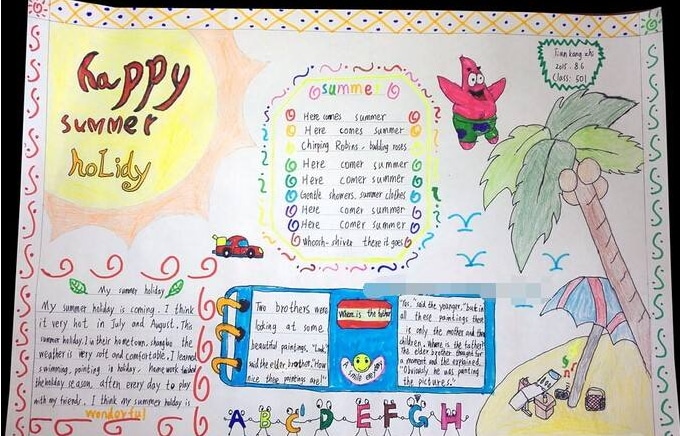 Happy
summer
holidy
summer
Here comes summer
Here comes summer
Chirping Robins, budding roses
Here comer summer
Here comer summer
Gentle showers, summer clothes
Here comer summer
Here comer summer
Whoosh-shiver there it goes
2015.8.6
Class: 501
My summer holiday
My summer holiday is coming. I think
it very hot in July and August. This
summer holiday. I in their hometown, the
weather is very soft and comfortable. I learned
swimming, painting in holiday. homework
the holiday season, often every day to play
with my friends. I think my summer holiday is
wonderful
Two brothers were
looking at some
beautiful paintings. "Look,"
said the elder brother. "How
nice these paintings are!"
Where is the father
A smile every day
"Yes," said the younger, "but in
all these paintings there
is only the mother and the
children. Where is the father?"
The elder brother thought for
a moment and the explained.
"Obviously he was painting
the pictures."
A B C D E F G H